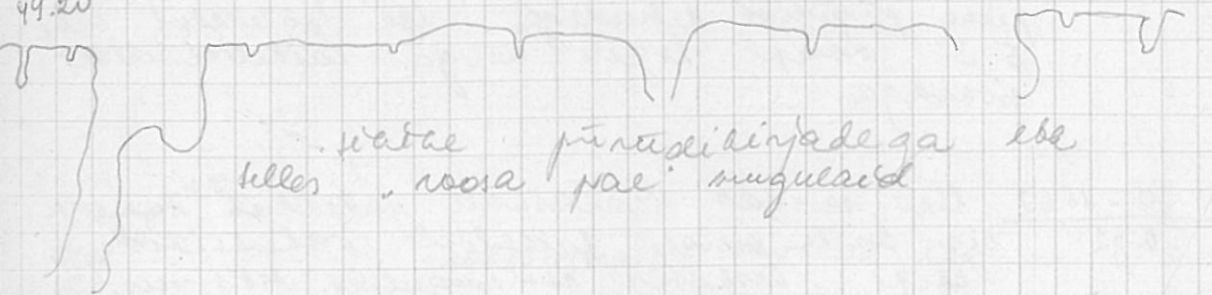 49.20
siake püriidikirjadega ebe
selles roosa pae mugulaid